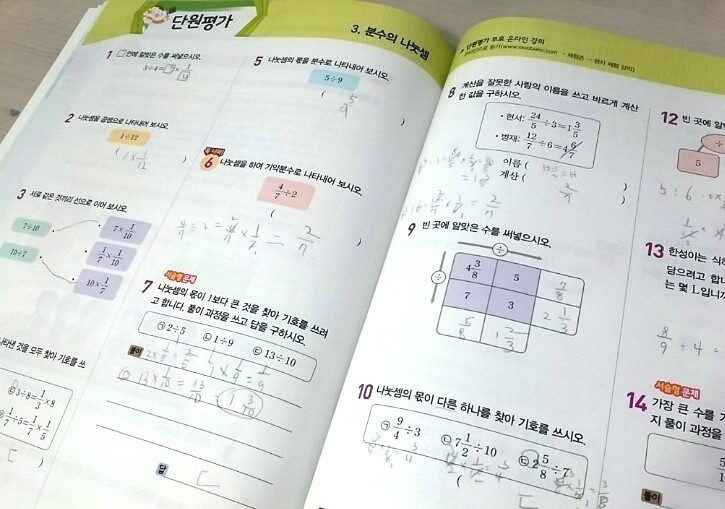 단원평가
3. 분수의 나눗셈
1 □ 안에 알맞은 수를 써넣으시오.
3÷4=3×1/4
2 나눗셈을 곱셈으로 나타내어 보시오.
1÷12
( 1×1/12 )
3 서로 같은 것끼리 선으로 이어 보시오.
7÷10
10÷7
7×1/10
1/7×1/10
10×1/7
나타낸 것을 모두 찾아 기호를 쓰
3÷8=1/3×8
1/7÷5=1/7×1/5
ㄷ )
5 나눗셈의 몫을 분수로 나타내어 보시오.
5÷9
( 5/9 )
6 나눗셈을 하여 기약분수로 나타내어 보시오.
4/7÷2
( )
4/7÷2= 4/7×1/2=2/7
서술형 문제
7 나눗셈의 몫이 1보다 큰 것을 찾아 기호를 쓰려
고 합니다. 풀이 과정을 쓰고 답을 구하시오.
㉠ 2÷5 ㉡ 1÷9 ㉢ 13÷10
풀이 2×1/5=2/5 1×1/9=1/9
13×1/10=13/10 1 3/10
답 ㄷ
단원평가 무료 온라인 강의
8 계산을 잘못한 사람의 이름을 쓰고 바르게 계산
한 값을 구하시오.
• 현서: 24/5÷3=1 3/5
• 병재: 12/7÷6=4 6/7
이름 ( 병재 )
계산 ( 2/7 )
9 빈 곳에 알맞은 수를 써넣으시오.
÷
÷ 4 3/8 5 7/8
7 3 2 1/3
5/8 1 2/3
10 나눗셈의 몫이 다른 하나를 찾아 기호를 쓰시오.
㉠ 9/4÷3 ㉡ 7 1/2÷10 ㉢ 2 5/8÷7
( ㄷ
12 빈 곳에 알
÷
5
5÷6
13 한성이는 식
담으려고 합니
는 몇 L입니까
8/9÷4=
서술형 문제
14 가장 큰 수를
지 풀이 과정을
풀이